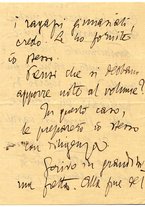 i ragazzi ginnasiali,
credo. Le ho fornite
io stesso.
Pensi che si debbano
apporre note al volume?
In questo caso,
le preparerei io stesso
con diligenza
Scrivo in grandissi
ma fretta. Alla fine del